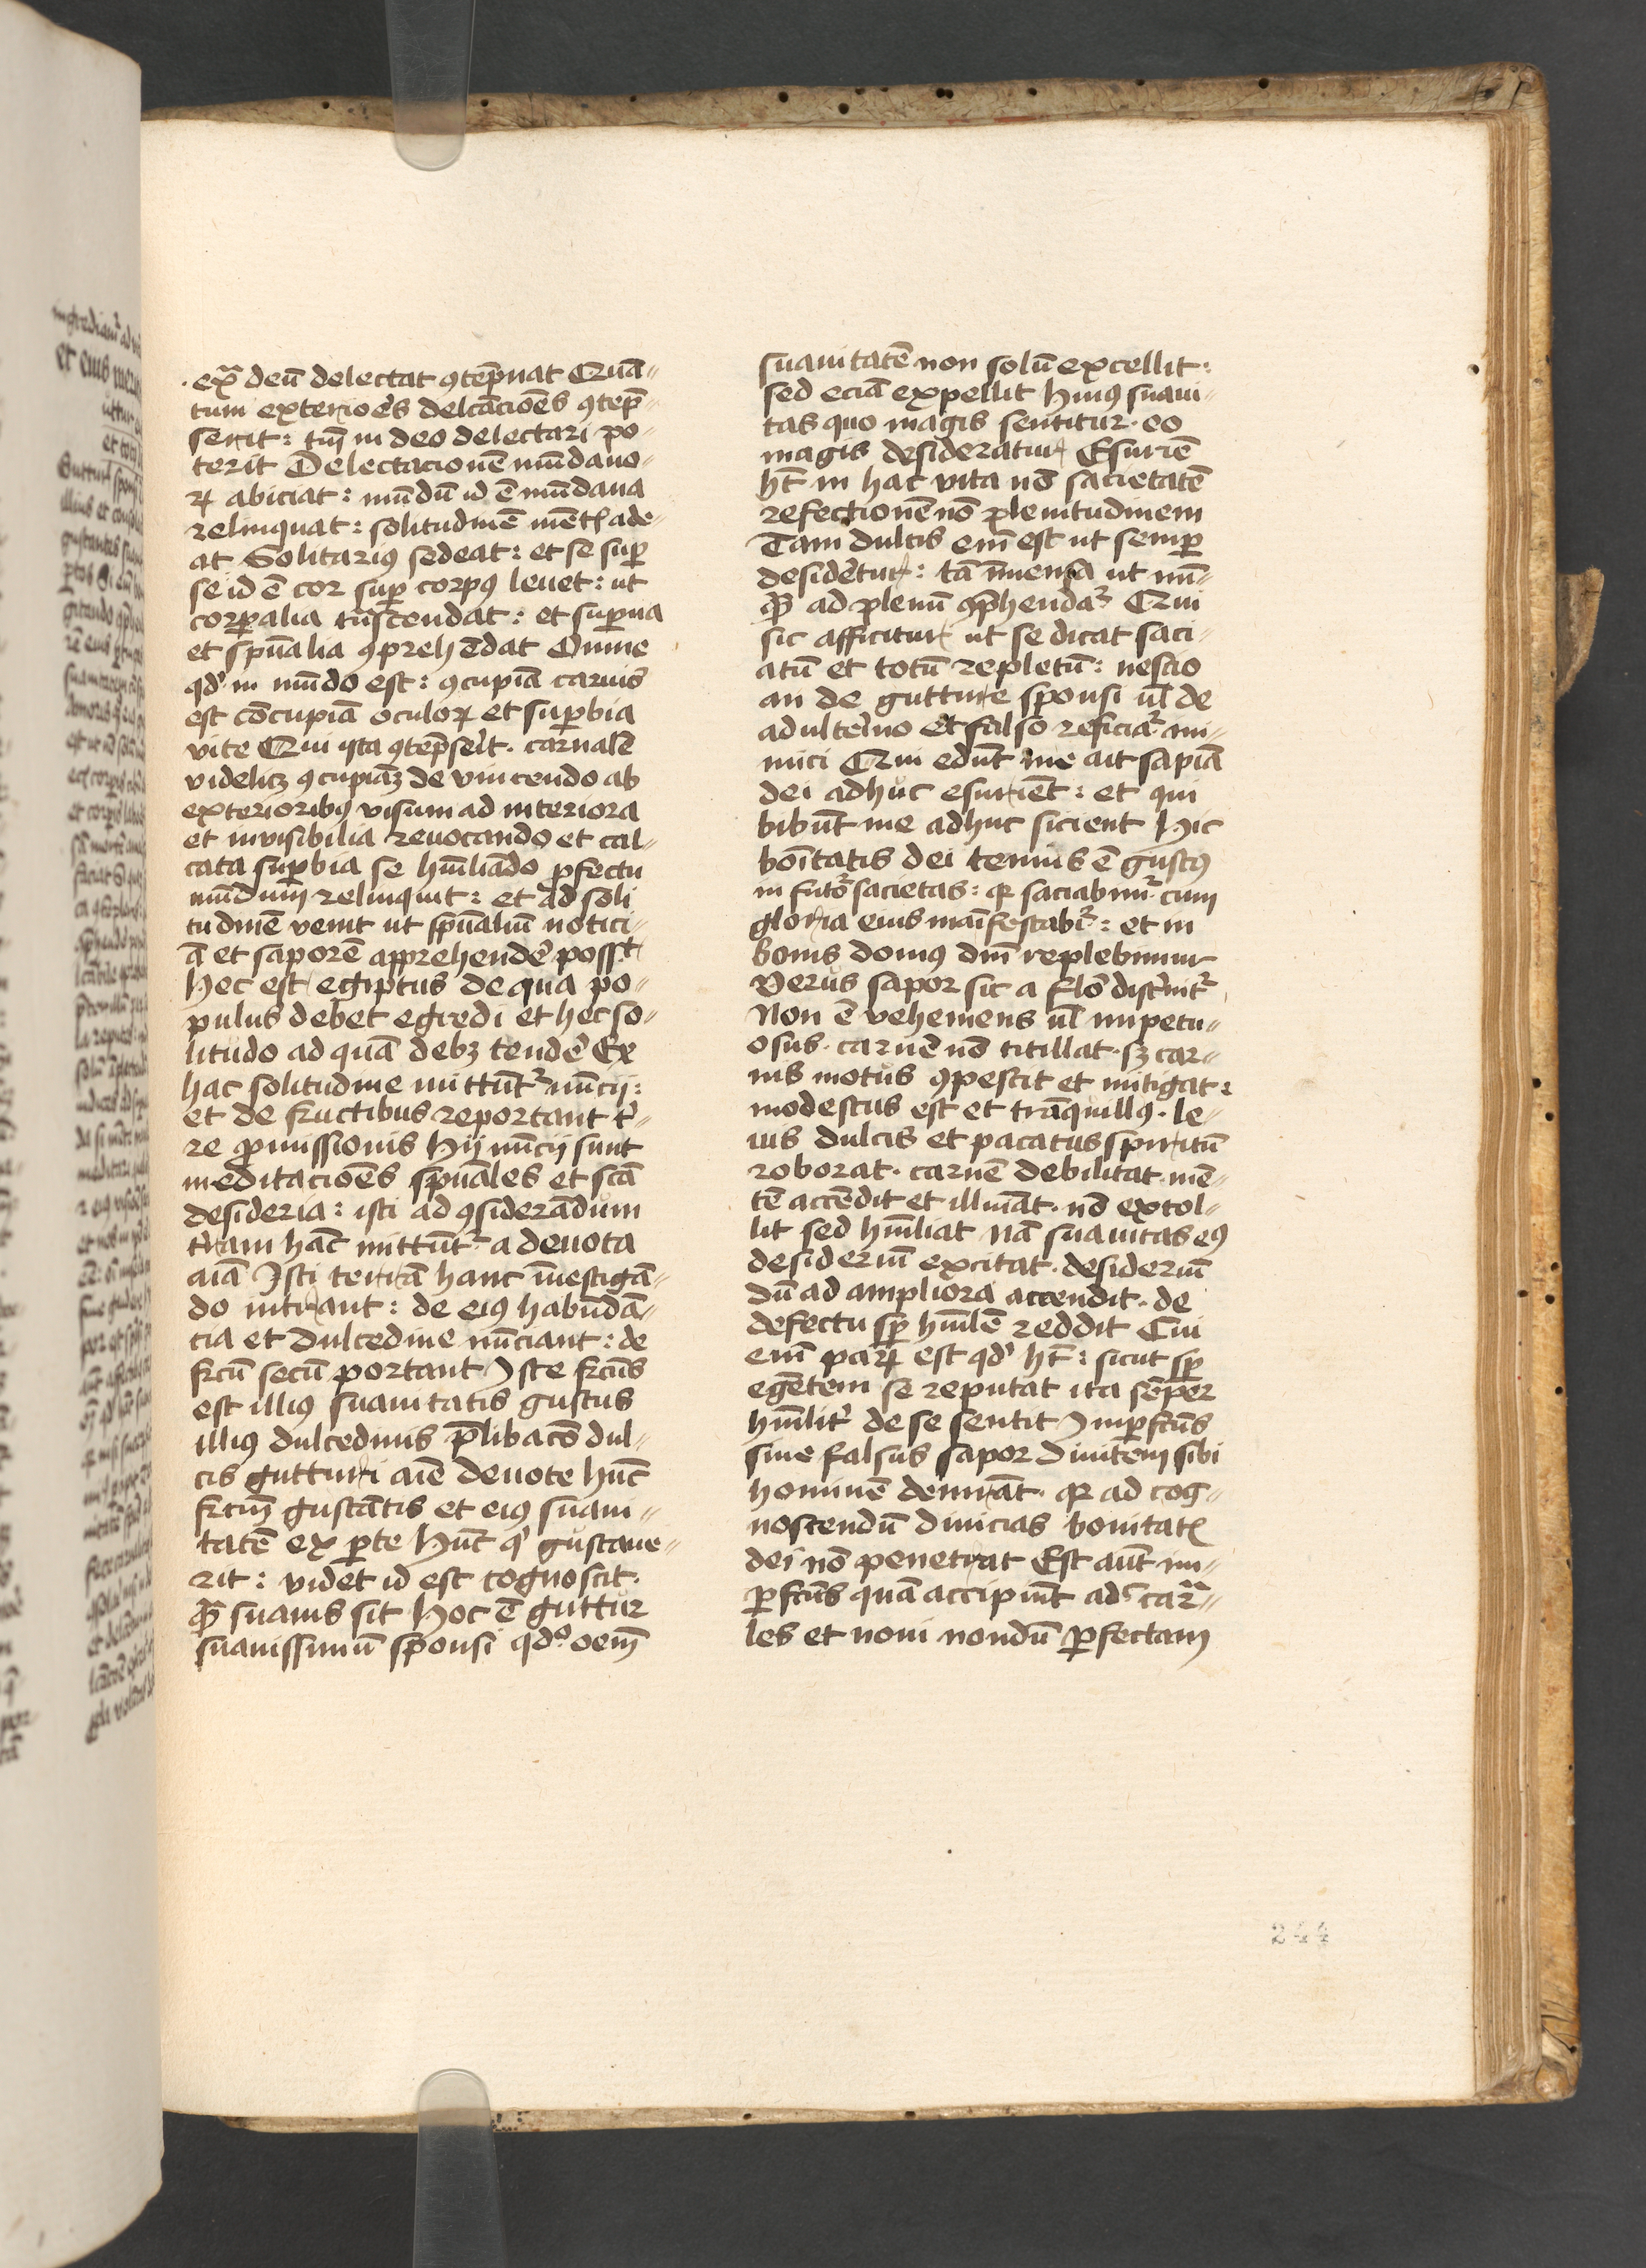 exͣ deū delectat ꝯtēpnat Quā-
tum exterioēs delcācioēs ꝯtēp-
serit: tm̄ in deo delectari po-
terit Delectacionē mūdano-
ꝝ abiciat: mūdū id ē mūdana
relinquat: solitudinē mētꝭ ade-
at Solitariꝰ sedeat: et se suꝑ
se id ē cor suꝑ corpꝰ leuet: ut
corꝑalia tn̄scendat: et suꝑna
et spūalia ꝯprehēdat Omne
qd' in mūdo est: ꝯcupiā carnis
est cōcupiā oculoꝝ et suꝑbia
vite Qui ista ꝯtēpser̄t. carnalē
videlicꝫ ꝯcupiāꝫ de vincendo ab
exterioribꝰ visum ad interiora
et invisibilia reuocando et cal-
cata suꝑbia se hm̄liādo ꝑfectu
mūdum relinquit: et ad soli
tudinē venit ut spūaliū notici-
ā et saporē apprehendē possꝫ
hec est egiptus de qua po-
pulus debet egredi et hec so-
litudo ad quā debꝫ tendē Ex
hac solitudine mittūtᷣ nūcij:
et de fructibus reportant t'-
re ꝓmissionis Hij nūcij sunt
meditacioēs spūales et scā
desideria: isti ad ꝯsiderādum
t'ram hāc mittūtᷣ a deuota
aīa Isti terrā hanc īuestigā-
do intrant: de eiꝰ habūdā-
cia et dulcedine nūciant: de
frcū secū portant Iste frcūs
est illiꝰ suauitatis gustus
illiꝰ dulcedinis p̄libacō dul-
cis gutturi aīe deuote hūc
frcm̄ gustātis et eiꝰ suaui-
tatē ex ꝑte Hūc qͥ gustaue-
rit: videt id est cognoscit.
qͣꝫ suauis sit Hoc ē guttur
suauissimū sponsi qd' oēm
suauitatē non solū excellit:
sed eciā expellit Huiꝰ suaui-
tas quo magis sentitur. eo
magis desideratur Esuriē
hꝫ̄ in hac vita nō sacietatē
refectionē nō plenitudinem
Tam dulcis em̄ est ut semꝑ
desidētur: tā īmensa ut nū-
qͣꝫ ad plenū ꝯphendaᷣ Qui
sic afficitur ut se dicat saci-
atū et totū repletū: nescio
an de gutture sponsi ul̄ de
adulterino et falso reficiaᷣ ini-
mici Qui edūt me ait sapiā
dei adhuc esuriēt: et qui
bibūt me adhuc sicient Hic
boītatis dei tenuis ē gustꝰ
in futōr sacietas: qꝛ saciabimᷣ cum
gloria eius maīfestabiᷣ: et in
bonis domꝰ dn̄i replebimur
Verus sapor sic a flō discernitᷣ
Non ē vehemens ul̄ impetu-
osus. carnē nō titillat. sꝫ car-
nis motus ꝯpescit et mitigat:
modestus est et trāquillꝰ. le-
uis dulcis et pacatus spiritū
roborat. carnē debilitat. mē-
tē accēdit et illuīat. nō extol-
lit sed hm̄liat Nā suauitas eiꝰ
desideriū excitat. desideriū
dū ad ampliora accendit. de
defectu sꝑ hm̄lē reddit Cui
em̄ paꝝ est qd' hꝫ̄: sicut sꝑ
egētem se reputat ita sēper
hm̄lit' de se sentit Imꝑfcūs
siue falsus sapor diuitem sibi
hominē demrāt. qꝛ ad cog-
noscendū diuicias bonitatꝭ
dei nō penetrat Est aūt im-
ꝑfcūs quā accipiūt adͨ carͣ-
les et noui nondū ꝑfectam
244